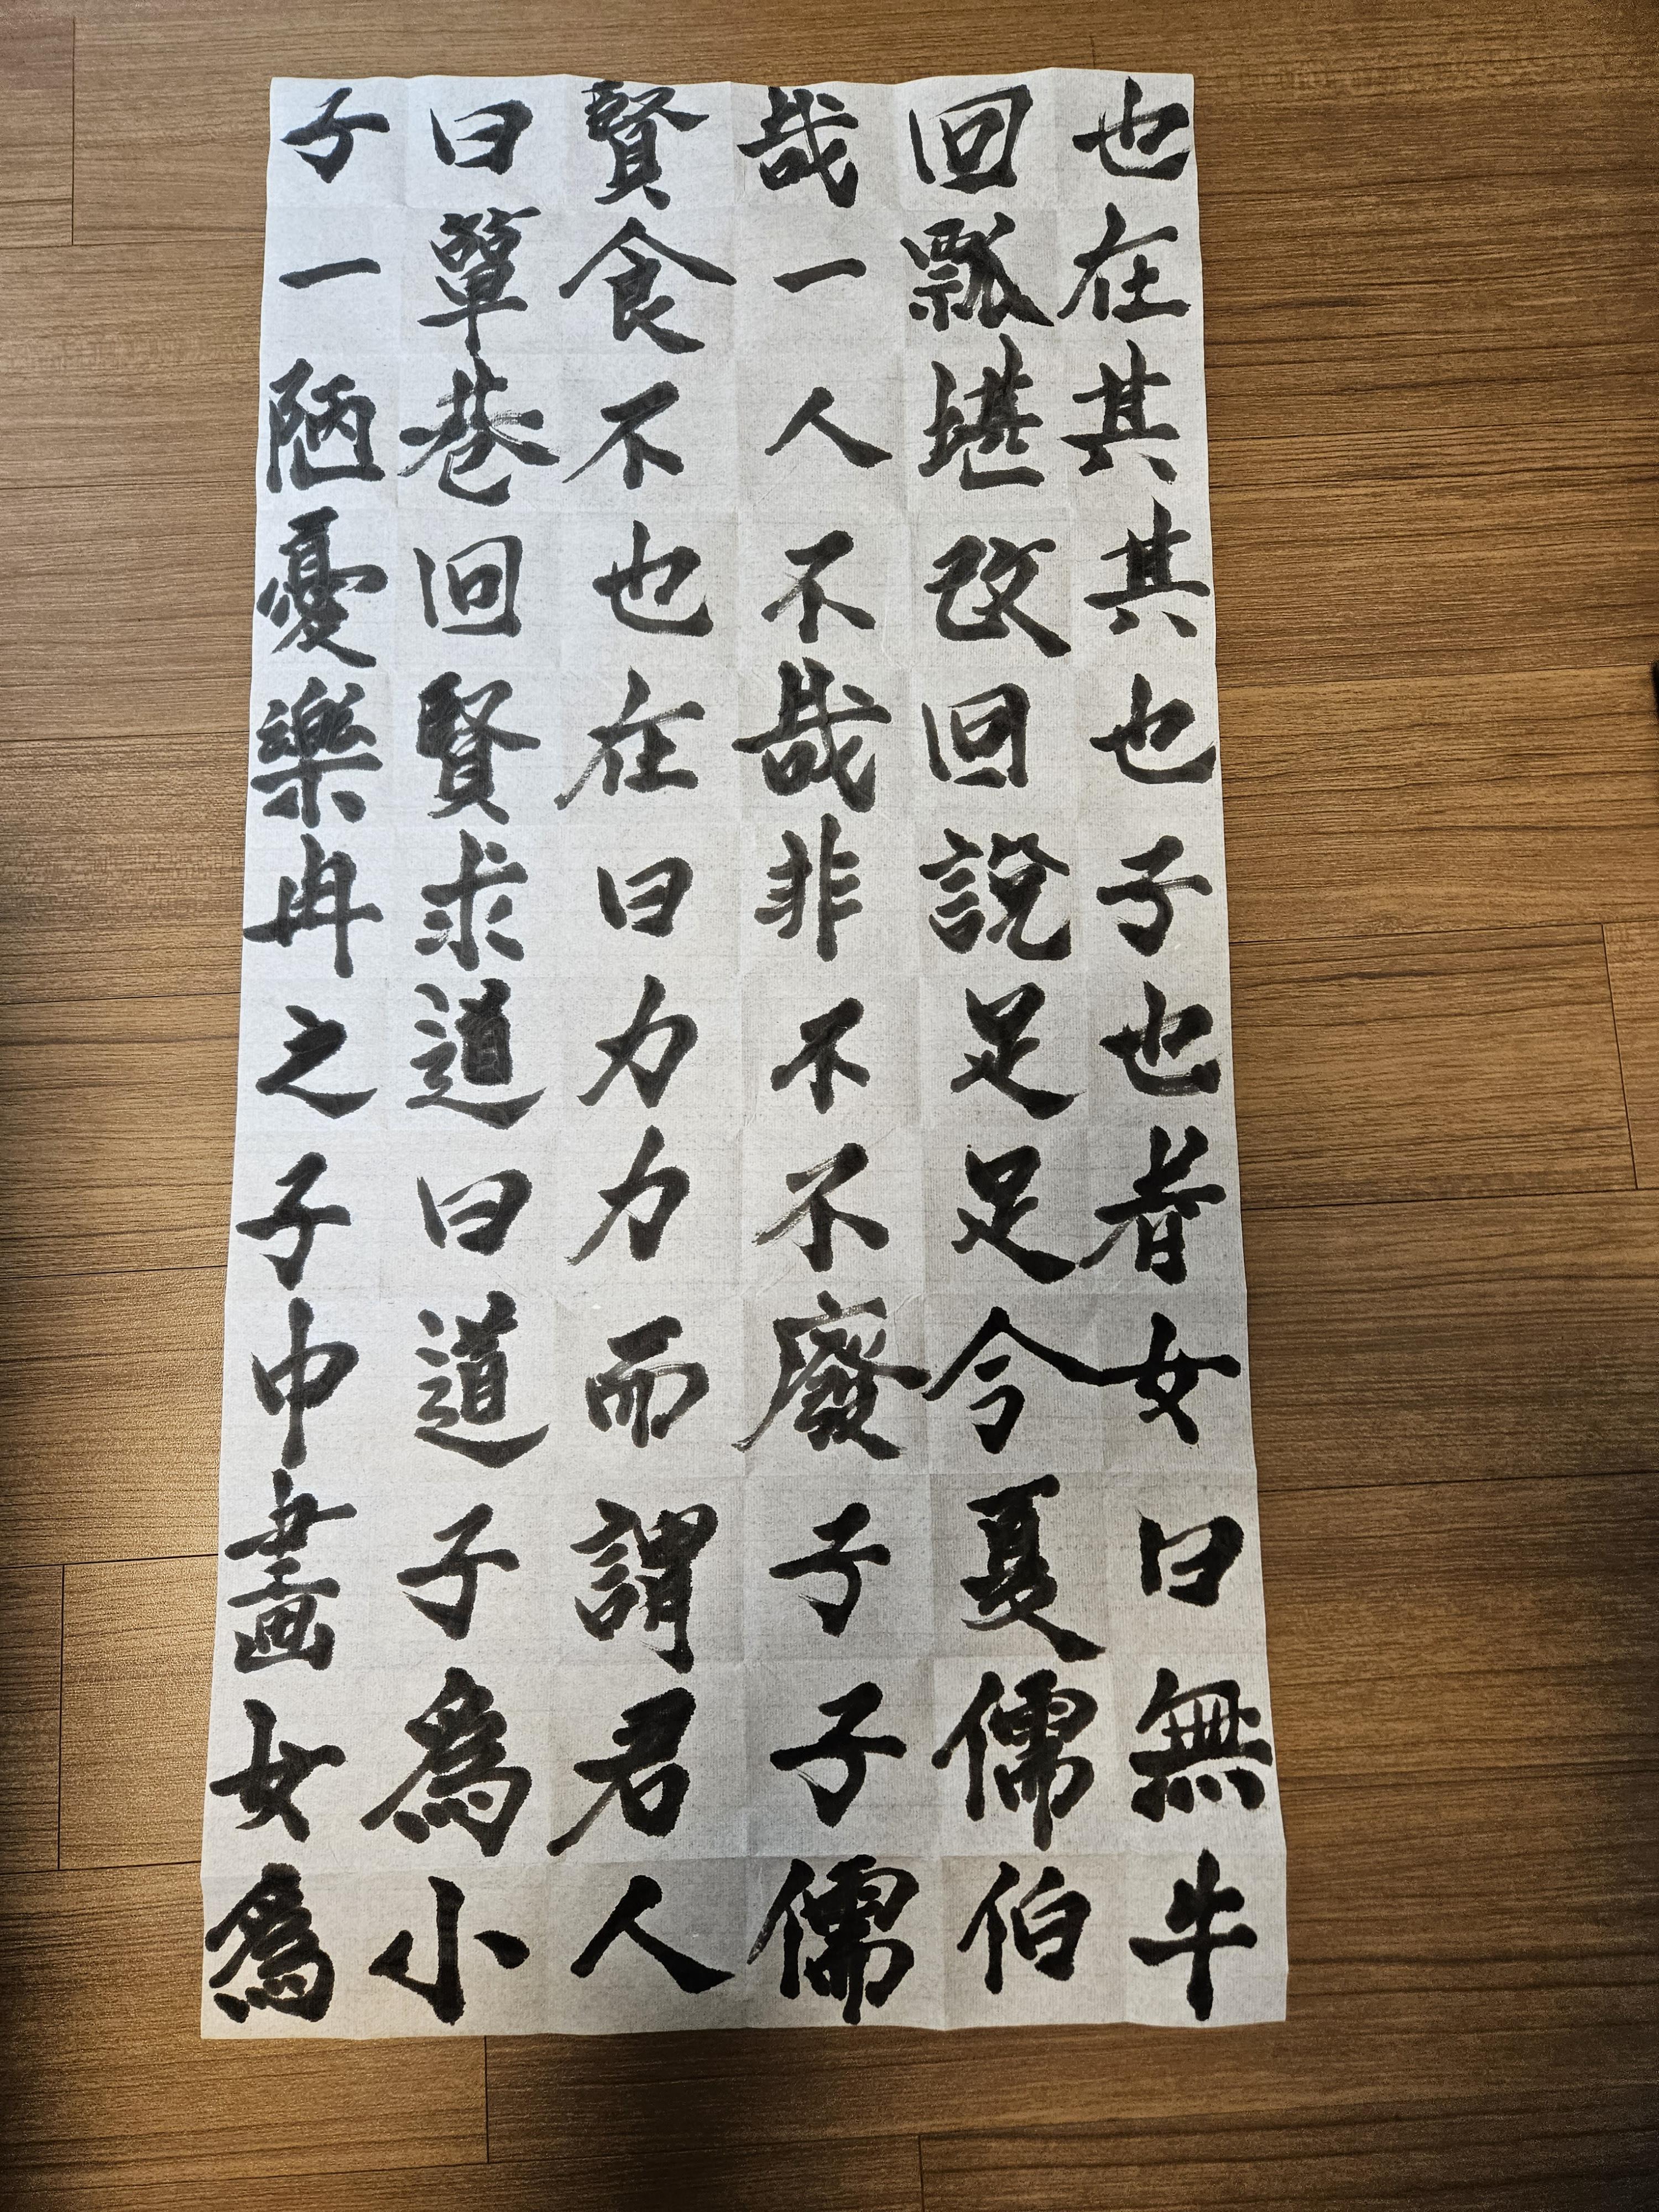 子曰賢哉回也
一簞食一瓢在
陋巷不人堪其
憂回也不改其
樂賢在哉回也
冉求曰非說子
之道力不足也
子曰力不足者
中道而廢今女
畫子謂子夏曰
女爲君子儒無
爲小人儒伯牛